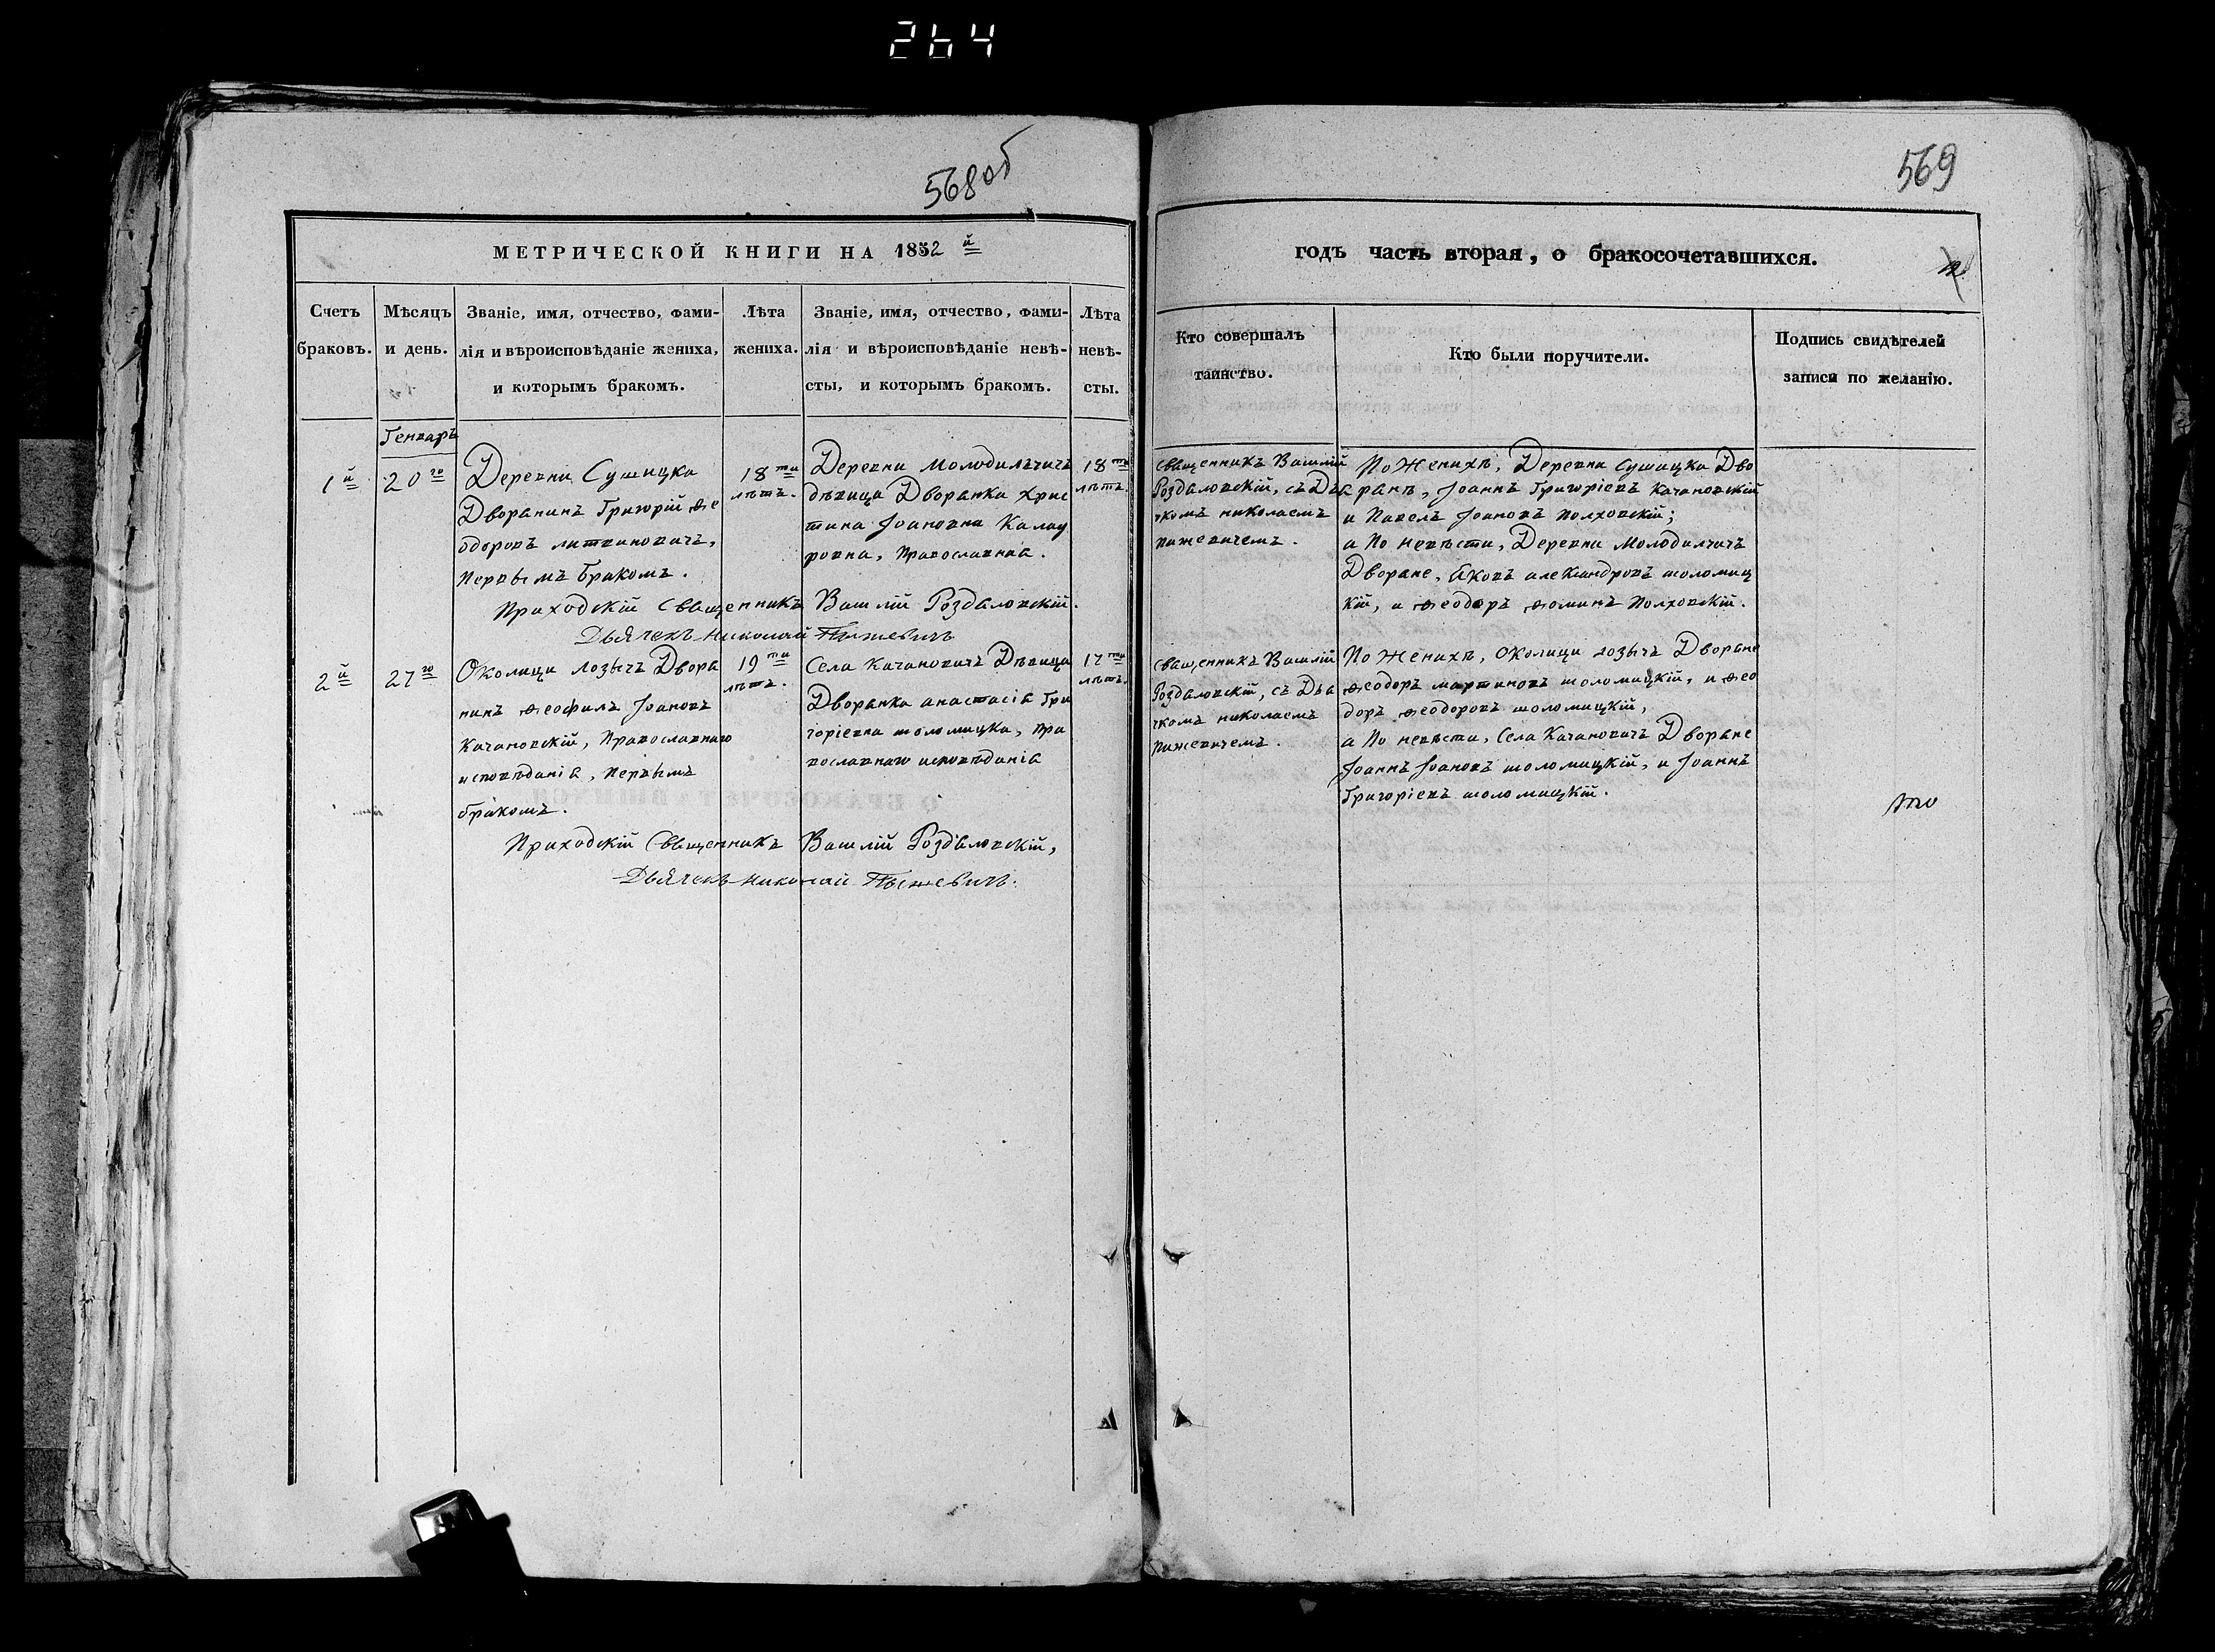 264
568об
569
МЕТРИЧЕСКОЙ КНИГИ НА 1852й
годъ часть вторая, о бракосочетавшихся.
Счетъ браковъ.
Мѣсяцъ и день.
Званіе, имя, отчество, фами-
лія и вѣроисповѣданіе жениха,
и которымъ бракомъ.
Лѣта
жениха.
Званіе, имя, отчество, фами-
лія и вѣроисповѣданіе невѣ-
сты, и которымъ бракомъ.
Лѣта
невѣ-
сты.
Кто совершалъ
таинство.
Кто были поручители.
Подпись свидѣтелей
записи по желанію.
Генварь
1й
20го
Деревни Сушицка
Дворанинъ Григорій Ѳе
одоровъ литвиновичъ,
Первымъ Бракомъ.
18ти
лѣтъ.
Деревни Молодильчичъ
дѣвица Дворанка Хрис
тина Іоановна Калау
ровна, Православнаа.
18ти
лѣтъ.
Священникъ Василій
Роздаловскій, съ Дьа
чкомъ николаемъ
пижевичемъ.
По Женихѣ, Деревни Сушицка Дво
ранѣ, Іоаннъ Григоріевъ Качановскій
и Павелъ Іоановъ Полховскій;
а По невѣсти, Деревни Молодилчичъ
Дворане, Яковъ александровъ шоломиц
кій, и Ѳеодоръ Ѳоминъ Полховскій.
Приходскій Священникъ Василій Роздаловскій.
Дьячекъ Николай Пыжевичъ
2й
27го
Околици Лозычъ Двора
нинъ Ѳеофилъ Іоановъ
Качановскій, Православнаго
исповѣданіа, первымъ
бракомъ.
19ти
лѣтъ.
Села Качановичъ Дѣвица
Дворанка анастасіа Гри
горіевна шоломицка, Пра
вославнаго исповѣданіа
17ти
лѣтъ.
Священникъ Василій
Роздаловскій, съ Дьа
чкомъ николаемъ
пижевичемъ.
По Женихѣ, Околици лозычъ Дворане
Ѳеодоръ мартиновъ шоломицкій, и Ѳео
доръ Ѳеодоровъ шоломицкій,
а По невѣсти, Села Качановичъ Дворане
Іоаннъ Іоановъ шоломицкій, и Іоаннъ
Григоріевъ шоломицкій.
Приходскій Священникъ Василій Роздаловскій,
Дьячекъ Николай Пыжевичъ.